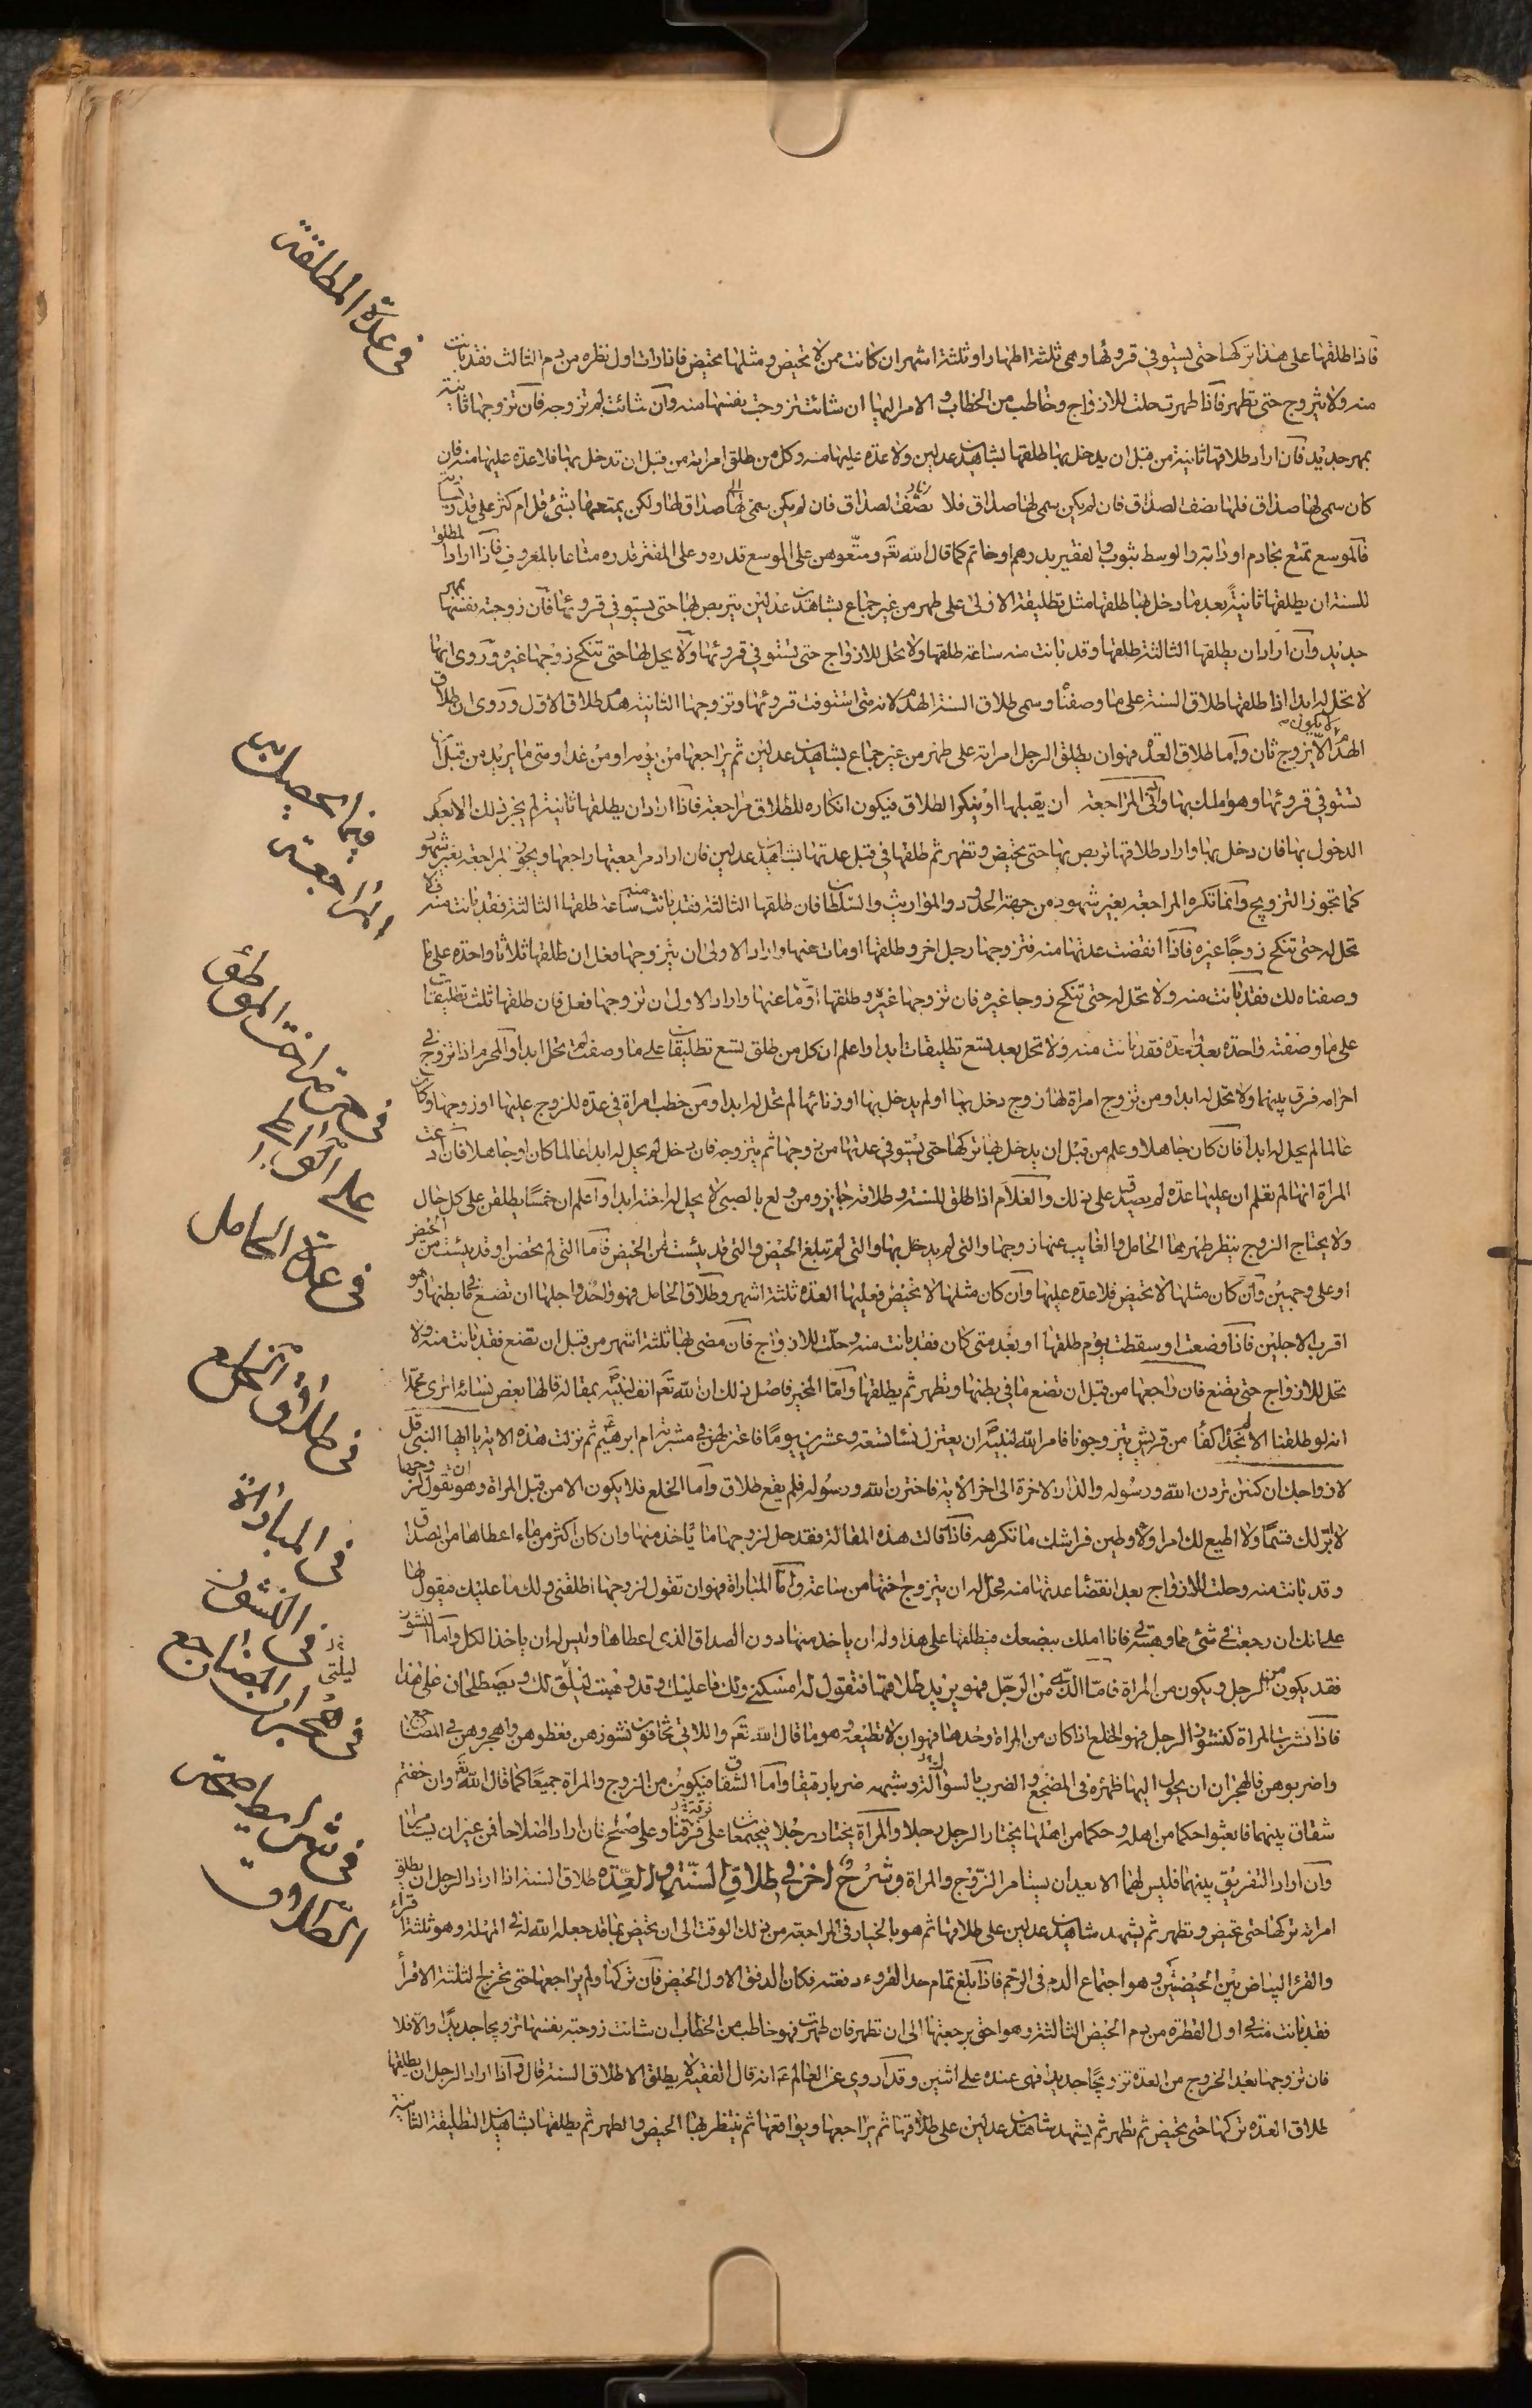 فى عدة المطلقة
فاذا طلقها على هذا تركها حتى يستوفى قروئها وهى ثلثة اطهار او ثلثة اشهر ان كانت ممن لا تحيض و مثلها تحيض فاذا رات اول نظره من دم الثالث فقد بانت
منه ولا تتزوج حتى تطهر فاذا طهرت حلت للازواج وخاطب من الخطاب والامر اليها ان شائت تزوجت بنفسها منه وان شائت لم تزوجه فان تزوجها ثانية
بمهر جديد فان اراد طلاقها ثانية من قبل ان يدخل بها طلقها بشاهدين عدلين ولا عدة عليها منه وكل من طلق امراته من قبل ان تدخل بها فلا عدة عليها منه فان
كان سمى لها صداق فلها نصف الصداق فان لم يكن سمى لها صداق فلا صداق لها ولكن يمتعها بشئ قل ام كثر على قدر يساره
فالموسع تمتع بخادم او دابة والوسط بثوب والفقير بدرهم او خاتم كما قال الله تعم ومتعوهن على الموسع قدره وعلى المقتر قدره متاعا بالمعروف فاذا اراد المطلق
للسنة ان يطلقها ثانية بعد ما دخل بها طلقها مثل تطليقة الاولى على طهر من غير جماع بشاهدين عدلين يتربص بها حتى يستوفى قروئها فان زوجته نفسها بمهر
جديد وان اراد ان يطلقها الثالثة طلقها وقد بانت منه ساعة طلقها ولا تحل للازواج حتى تستوفى قروئها ولا يحل لها حتى تنكح زوجها غيره وروى انها
لا تحل له ابدا اذا طلقها طلاق السنة على ما وصفنا وسمى طلاق السنة الهدم لانه متى استوفت قروئها وتزوجها الثانية هدم طلاق الاول وروى ان طلاق
لا يكون
الهدم الا بزوج ثان واما طلاق العدة فهو ان يطلق الرجل امراته على طهر من غير جماع بشاهدين عدلين ثم يراجعها من يومه او من غدا ومتى ما يريد من قبل ان
تستوفى قروئها وهو املك بها وادنى المراجعة ان يقبلها او ينكر الطلاق فيكون انكاره للطلاق مراجعة فاذا اراد ان يطلقها ثانية لم يجز ذلك الا بعد
الدخول بها فان دخل بها واراد طلاقها تربص بها حتى تحيض وتطهر ثم طلقها فى قبل عدتها بشاهدين عدلين فان اراد مراجعتها راجعها ويجوز المراجعة بغير شهود
كما تجوز التزويج وانما تكره المراجعة بغير شهود من جهة الحدود والمواريث والسلطان فان طلقها الثالثة فقد بانت منه ساعة طلقها الثالثة فقد بانت منه فلا
تحل له حتى تنكح زوجا غيره فاذا انقضت عدتها منه فتزوجها رجل اخر وطلقها او مات عنها واراد الاولى ان يتزوجها فعل ان طلقها ثلاثا واحدة على ما
وصفناه لك فقد بانت منه ولا تحل له حتى تنكح زوجا غيره فان تزوجها غيره وطلقها او مات عنها واراد الاول ان تزوجها فعل فان طلقها ثلث تطليقات
على ما وصفته واحدة بعد واحدة فقد بانت منه ولا تحل بعد تسع تطليقات ابدا واعلم ان كل من طلق تسع تطليقات على ما وصفت لم تحل ابدا والمحرم اذا تزوج فى
احرامه فرق بينهما ولا تحل له ابدا ومن تزوج امراة لها زوج دخل بها او لم يدخل بها او زنا بها لم تحل له ابدا ومن خطب امراة فى عدة للزوج عليها او زوجها وكان
عالما لم يحل له ابدا فان كان جاهلا وعلم من قبل ان يدخل بها تركها حتى تستوفى عدتها من زوجها ثم يتزوجه فان دخل لم يحل له ابدا عالما كان او جاهلا فان ادعت
المراة انها لم تعلم ان عليها عدة لم يصدق على ذلك والغلام اذا طلق للسنة وطلاقه جايز ومن ولع بالصبى لا يحل له اخته ابدا واعلم ان خمسا يطلقن على كل حال
ولا يحتاج الزوج ينظر طهرها الحامل والغايب عنها زوجها والتى لم يدخل بها والتى لم تبلغ الحيض والتى قد يئست من الحيض فاما التى لم تحض او قد يئست من الحيض
او على وجهين وان كان مثلها لا تحيض فلا عدة عليها وان كان مثلها لا تحيض فعليها العدة ثلثة اشهر وطلاق الحامل فهو واحد واجلها ان تضع ما فى بطنها وهو
اقرب الاجلين فاذا وضعت او سقطت يوم طلقها او بعد متى كان فقد بانت منه وحلت للازواج فان مضى لها ثلثة اشهر من قبل ان تضع فقد بانت منه ولا
تحل للازواج حتى تضع فان راجعها من قبل ان تضع ما فى بطنها وتطهر ثم يطلقها واما المخير فاصل ذلك ان الله تعم انف لنبيه بمقالة قالها بعض نسائه اترى محمدا
انه لو طلقنا الا نجد اكفا من قريش يتزوجونا فامر الله لنبيه ان يعتزل نسائه تسعة وعشرين يوما فاعتزلهن فى مشربة ام ابرهيم ثم نزلت هذه الاية يا ايها النبى قل
لازواجك ان كنتن تردن الله ورسوله والدار الاخرة الى اخر الاية فاخترن الله ورسوله فلم يقع طلاق واما الخلع فلا يكون الا من قبل المراة وهو ان تقول لزوجها
لا ابر لك قسما ولا اطيع لك امرا ولاوطين فراشك ما تكرهه فاذا قالت هذه المقالة فقد حل لزوجها ما ياخذ منها وان كان اكثر من ما اعطاها من الصداق
وقد بانت منه وحلت للازواج بعد انقضا عدتها منه فحل له ان يتزوج اختها من ساعته واما المباراة فهو ان تقول لزوجها طلقنى ولك ما عليك فيقول لها
على انك ان رجعت فى شئ مما وهبته لى فانا املك ببضعك فيطلقها على هذا وله ان ياخذ منها دون الصداق الذى اعطاها وليس له ان ياخذ الكل واما النشوز
فقد يكون من الرجل ويكون من المراة فاما الذى من الرجل فهو يريد طلاقها فتقول له امسكنى ولك ما عليك وقد وهبت ليلتى لك ويصطلحان على هذا
فاذا نشزت المراة كنشوز الرجل فهو الخلع اذا كان من المراة وحدها فهو ان لا تطيعه وهو ما قال الله تعم واللاتى تخافون نشوزهن فعظوهن واهجروهن فى المضاجع
واضربوهن فالهجران ان يحول اليها ظهره فى المضجع والضرب بالسواك وشبهه ضربا رفيقا واما الشقاق فيكون من الزوج والمراة جميعا كما قال الله تعم وان خفتم
شقاق بينهما فابعثوا حكما من اهله وحكما من اهلها يختار الرجل رجلا والمراة يختار رجلا فيجتمعان على فرقة او على صلح فان ارادا اصلاحا فمن غير ان يستامرا
وان ارادا التفريق بينهما فليس لهما الا بعد ان يستامر الزوج والمراة وشرح اخر فى طلاق السنة والعدة طلاق السنة اذا اراد الرجل ان يطلق
امراته تركها حتى تحيض وتطهر ثم يشهد شاهدين عدلين على طلاقها ثم هو بالخيار فى المراجعة من ذلك الوقت الى ان تحيض بما قد جعل الله له فى المهلة وهو ثلثة اقراء
والقرء البياض بين الحيضتين وهو اجتماع الدم فى الرحم فاذا بلغ تمام حد القروء دفعته فكان الدفق الاول الحيض فان تركها ولم يراجعها حتى تخرج الثلثة الاقرا
فقد بانت منه فى اول القطرة من دم الحيض الثالثة وهو احق برجعتها الى ان تطهر فان طهرت فهو خاطب من الخطاب ان شائت زوجته نفسها تزويجا جديدا والا فلا
فان تزوجها بعد الخروج من العدة تزويجا جديدا فهى عنده على اثنين وقد اروى عن العالم ع انه قال الفقيه لا يطلق الا طلاق السنة قال واذا اراد الرجل ان يطلقها
طلاق العدة تركها حتى تحيض ثم تطهر ثم يشهد شاهدين عدلين على طلاقها ثم يراجعها ويواقعها ثم ينتظر بها الحيض والطهر ثم يطلقها بشاهدين التطليقة الثانية
فيما يحصل به
المراجعة
فى حرمة اخت الموطئ
على الواطى
فى عدة الحامل
فى طلاق الخلع
فى المباراة
فى النشوز
ليلتى
فى هجران المضاجع
فى شرايط صحة
الطلاق